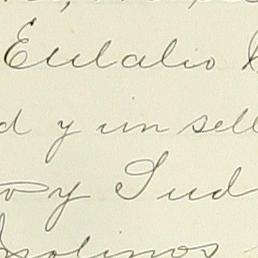 Eulalio
d y un sell
o y Jud
Molinos